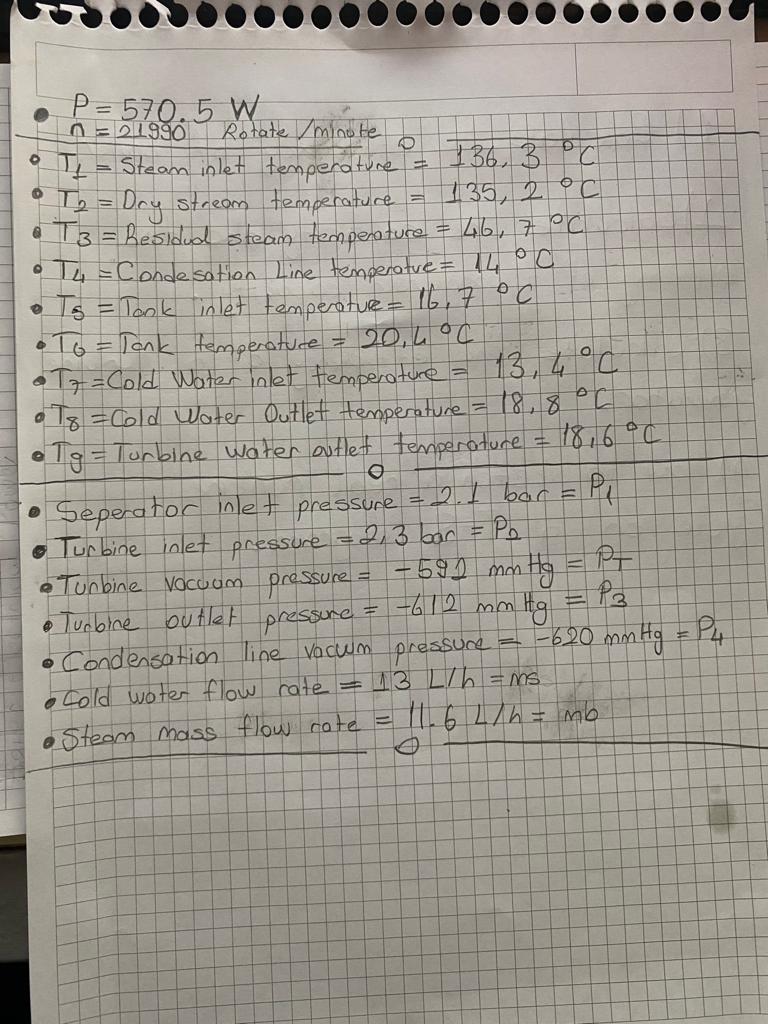 P = 570.5 W
n = 21990 Rotate/minute
T1 = Steam inlet temperature = 136,3 °C
T2 = Dry stream temperature = 135,2 °C
T3 = Residual steam temperature = 46,7 °C
T4 = Condesation Line temperature = 14 °C
T5 = Tank inlet temperature = 16,7 °C
T6 = Tank temperature = 20,4 °C
T7 = Cold Water inlet temperature = 13,4 °C
T8 = Cold Water Outlet temperature = 18,8 °C
T9 = Turbine water outlet temperature = 18,6 °C
Seperator inlet pressure = 2.1 bar = P1
Turbine inlet pressure = 2,3 bar = P2
Turbine vacuum pressure = -592 mmHg = PT
Turbine outlet pressure = -612 mmHg = P3
Condensation line vacum pressure = -620 mmHg = P4
Cold water flow rate = 13 L/h = ms
Steam mass flow rate = 11.6 L/h = mb